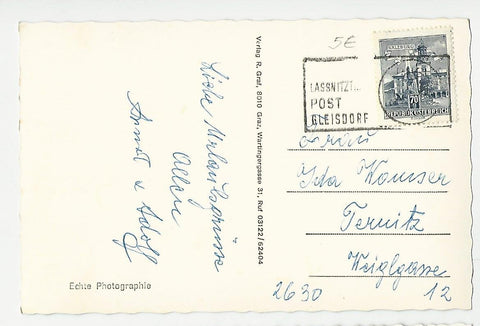 5€
SALZBURG
70
REPUBLIK ÖSTERREICH
LASSNITZT...
POST
GLEISDORF
Liebe Urlaubsgrüsse
Allen
Annel u Adolf
Verlag R. Graf, 8010 Graz, Wartingergasse 31, Ruf 03122/52404
Frau
Ida
Ternitz
Weiglgasse
2630 12
Echte Photographie